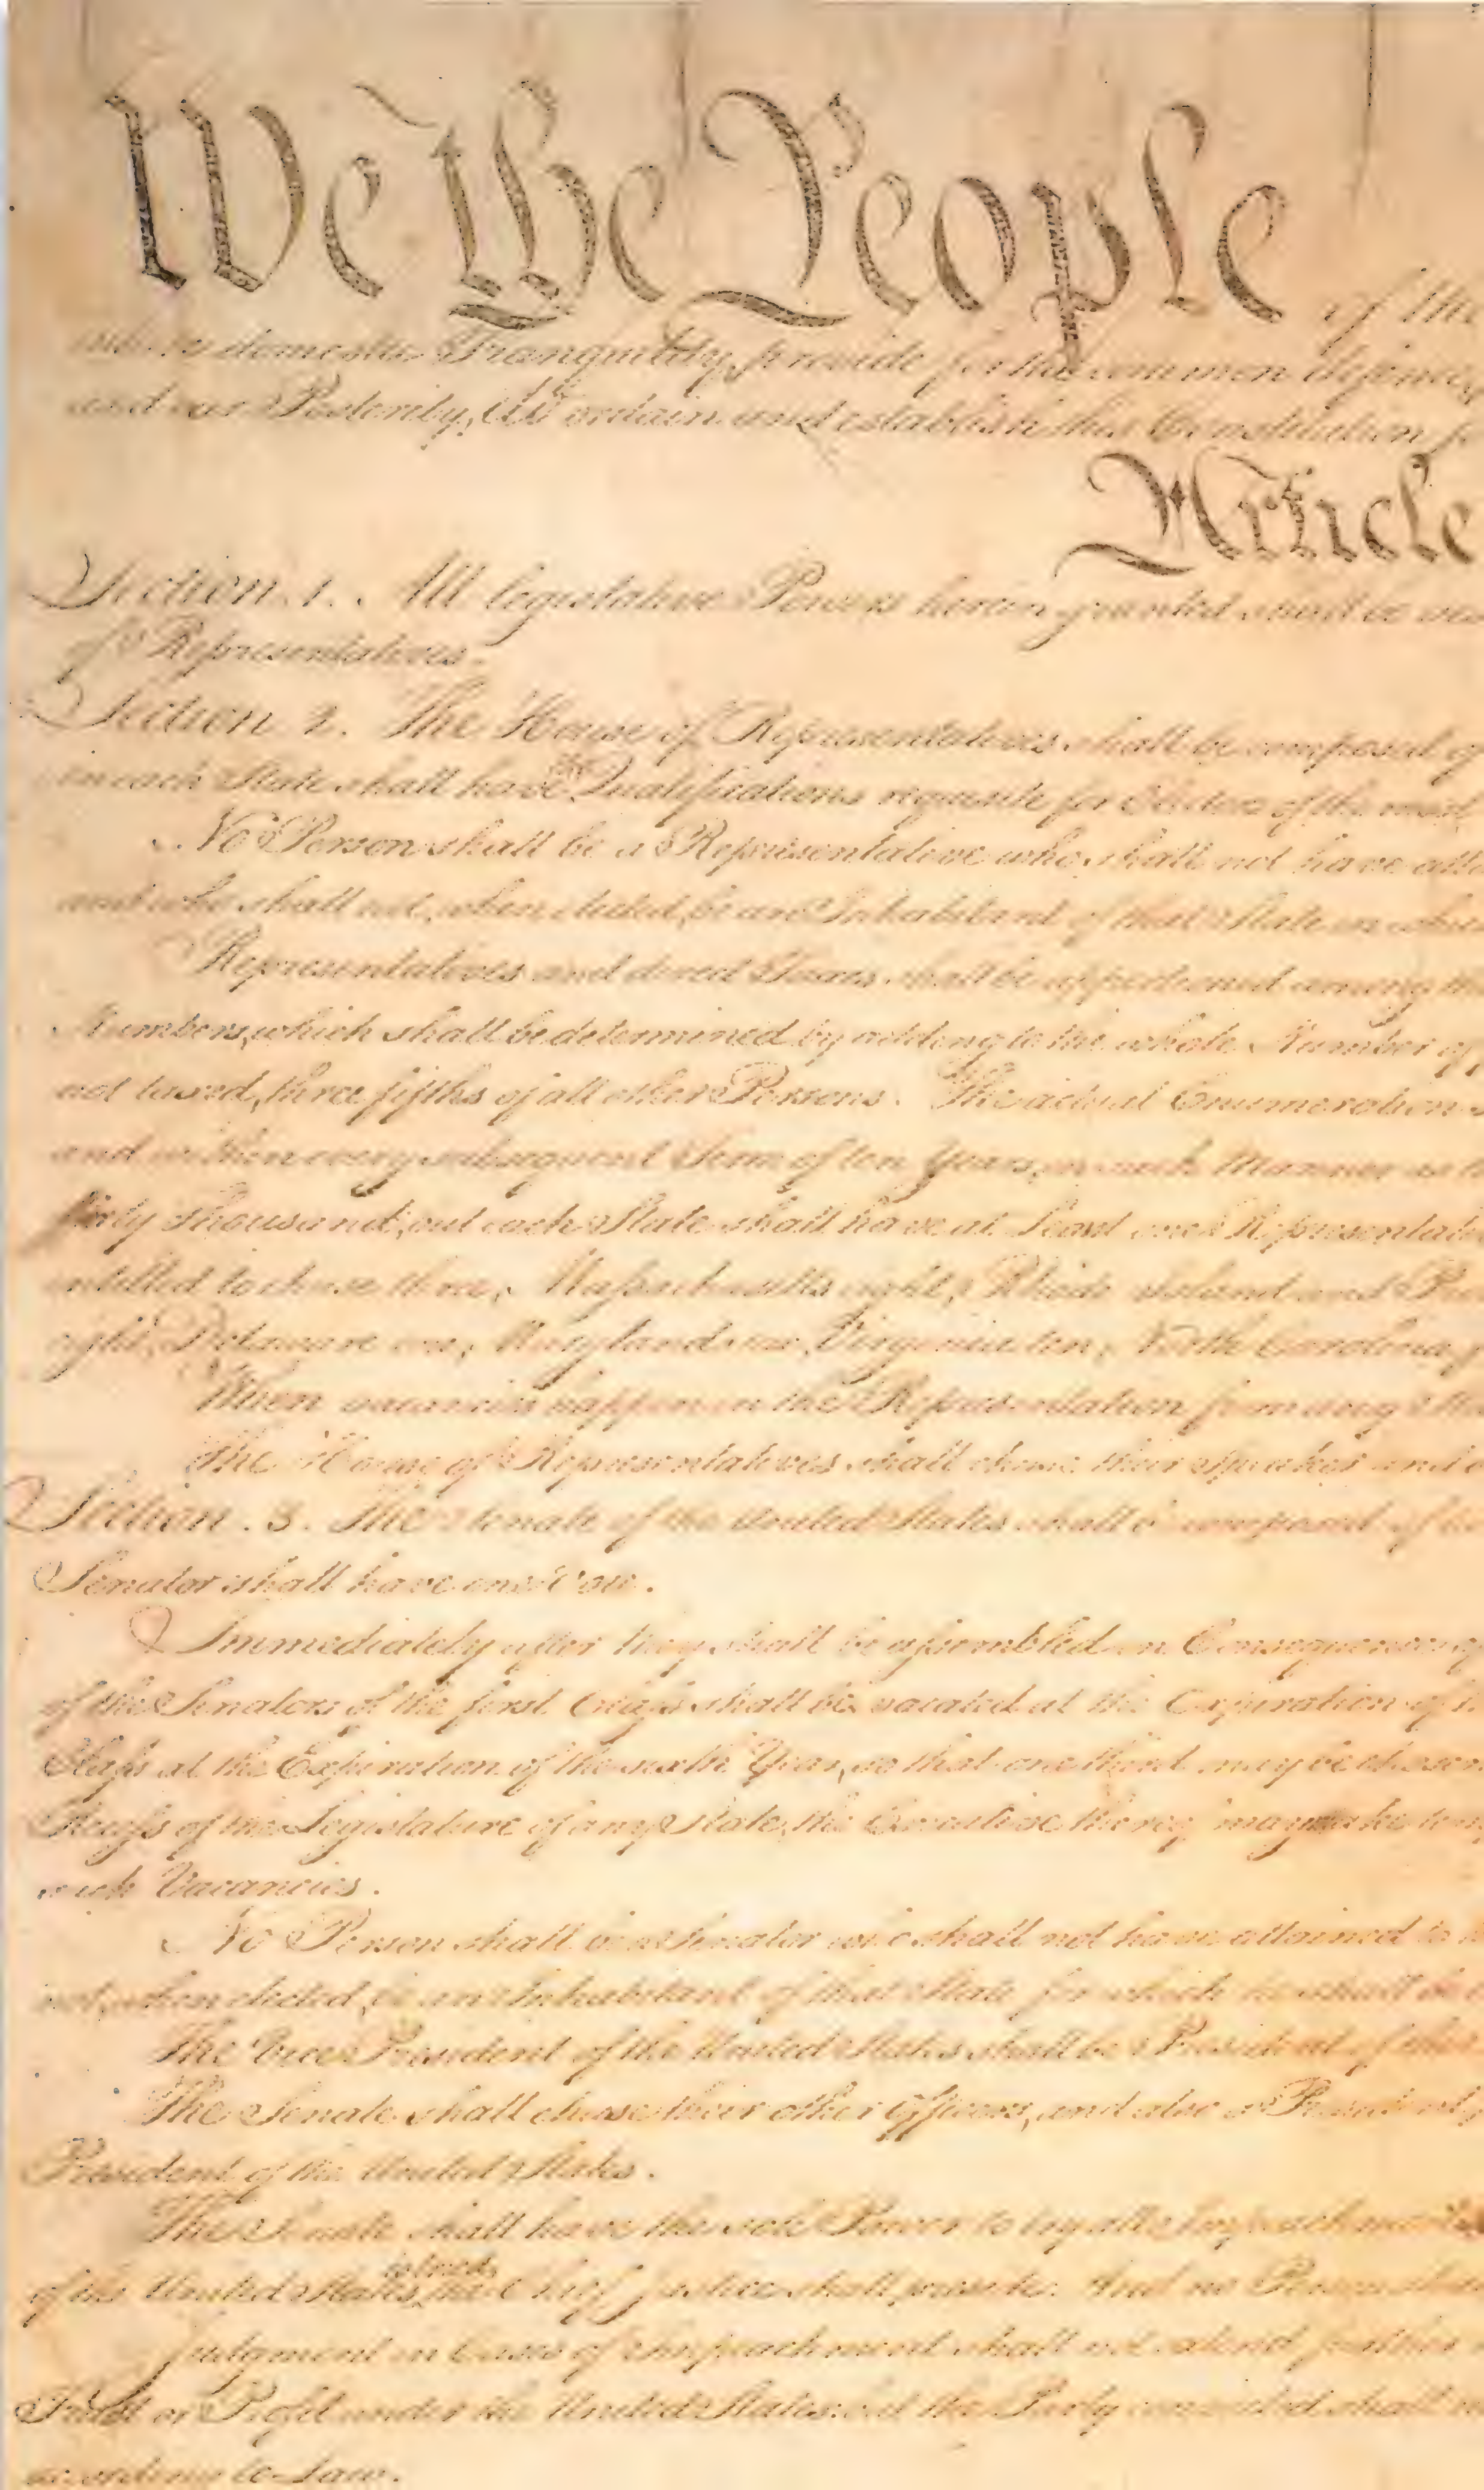 We the People of the
insure domestic Tranquility, provide for the common defence,
and our Posterity, do ordain and establish this Constitution
Article
Section. 1. All legislative Powers herein granted shall be
of Representatives.
Section. 2. The House of Representatives shall be composed of
in each State shall have the Qualifications requisite for Electors of the most
No Person shall be a Representative who shall not have
and who shall not, when elected, be an Inhabitant of that State in which
Representatives and direct Taxes shall be apportioned among the
Numbers, which shall be determined by adding to the whole Number of
not taxed, three fifths of all other Persons. The actual Enumeration
and within every subsequent Term of ten Years, in such Manner as
thirty Thousand, but each State shall have at Least one Representative
entitled to chuse three, Massachusetts eight, Rhode Island and
eight, Delaware one, Maryland six, Virginia ten, North Carolina
When vacancies happen in the Representation from any
The House of Representatives shall chuse their Speaker and
Section. 3. The Senate of the United States shall be composed of
Senator shall have one Vote.
Immediately after they shall be assembled in Consequence of
of the Senators of the first Class shall be vacated at the Expiration of
Class at the Expiration of the sixth Year, so that one third may be chosen
Recess of the Legislature of any State, the Executive thereof may make
such Vacancies.
No Person shall be a Senator who shall not have attained to
not, when elected, be an Inhabitant of that State for which he shall be
The Vice President of the United States shall be President of the
The Senate shall chuse their other Officers, and also a President
President of the United States.
The Senate shall have the sole Power to try all Impeachments
of the United States is tried, the Chief Justice shall preside: And no Person
Judgment in Cases of Impeachment shall not extend further
Trust or Profit under the United States: but the Party convicted shall
according to Law.